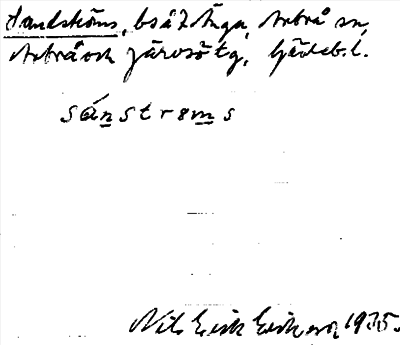 Sandströms, bs å Änga, Arbrå sn,
Arbrå och Järvsö tg, Gävleb.l.
sánstrøms
Nils Erik Eriksson 1935.